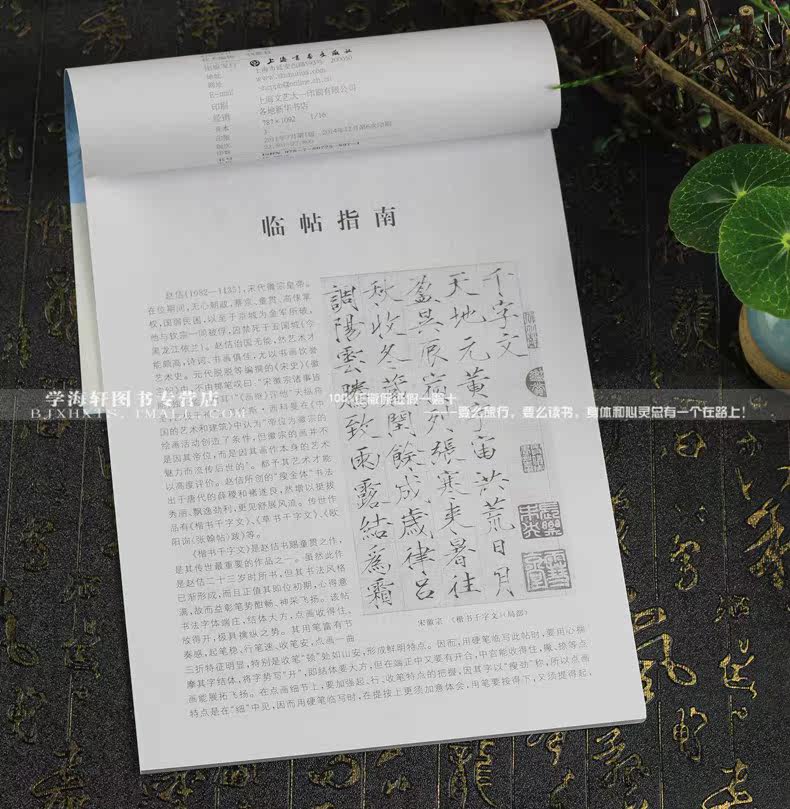 上海书画出版社
上海市延安西路593号 200050
网址
www.shshuhua.com
E-mail
印刷
上海文艺大一印刷有限公司
经销
各地新华书店
开本
787×1092 1/16
临帖指南
赵佶(1082—1135),宋代徽宗皇帝。
在位期间,无心朝政,蔡京、童贯、高俅掌
权,国弱民困,以至于京城为金军所破,
他与钦宗一同被俘,囚禁死于五国城(今
黑龙江依兰)。赵佶治国无能,然艺术才
能颇高,诗词、书画俱佳,尤以书画饮誉
艺术史。元代脱脱等编撰的《宋史》(徽
宗纪)中,不由掷笔叹曰:“宋徽宗诸事皆
国的艺术和建筑》中认为“帝位为徽宗的
绘画活动创造了条件,但徽宗的画并不
是因其帝位,而是因其画作本身的艺术
魅力而流传后世的”。都予其艺术才能
以高度评价。赵佶所创的“瘦金体”书法
出于唐代的薛稷和褚遂良,然增以挺拔
秀丽、飘逸劲利,更见舒展风流。传世作
品有《楷书千字文》、《草书千字文》、《欧
阳询〈张翰帖〉跋》等。
《楷书千字文》是赵佶书赐童贯之作,
是其传世最重要的作品之一。虽然此作
是赵佶二十三岁时所书,但其书法风格
已渐形成,而且正值其即位初期,心得意
满,故而益彰笔势酣畅、神采飞扬。该帖
书法字体端庄,结体大方,点画收得住,
放得开,极具擒纵之势。其用笔富有节
奏感,起笔稳、行笔速、收笔安,点画一曲
三折特征明显,特别是收笔“顿”处如山安,形成鲜明特点。因而,用硬笔临写此帖时,要用心揣
摩其字结体,将字势写“开”,即结体要大方,但在端正中又要有开合,中宫能收得住,撇、捺等点
画能展拓飞扬。在点画细节上,要加强起、行、收笔特点的把握,因其字以“瘦劲”称,所以点画
特点是在“细”中见,因而用硬笔临写时,在提按上更须加意体会,用笔要按得下,又须提得起,
千字文
天地元黄宇宙洪荒日月
盈昃辰宿列張寒来暑往
秋收冬藏閏餘成歲律吕
調陽雲騰致雨露結為霜
宋徽宗 《楷书千字文》(局部)
学海轩图书专营店
BJXHXTS.TMALL.COM
100%正徽保证假一赔十
——要么旅行,要么读书,身体和心灵总有一个在路上!